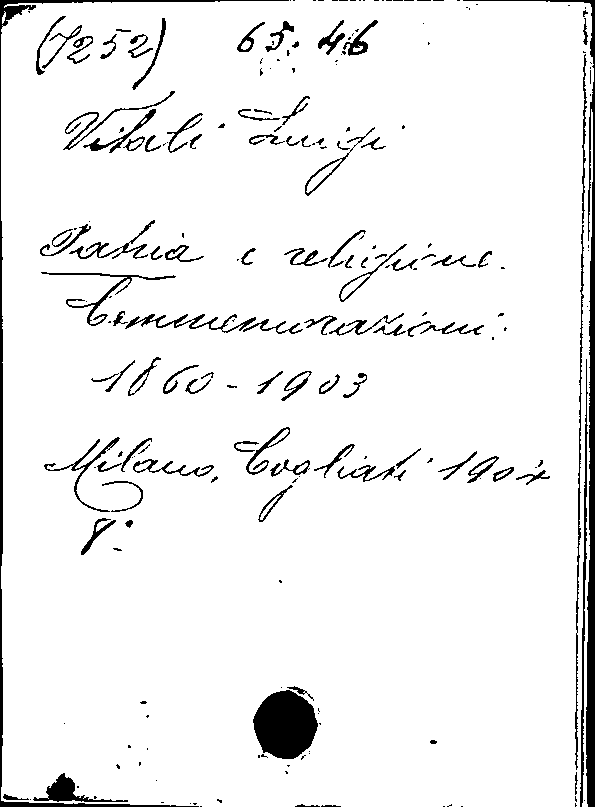 (7252) 65.46
Vitali Luigi
Patria e religione.
Commemorazioni:
1860-1903
Milano, Cogliati 1904
8°